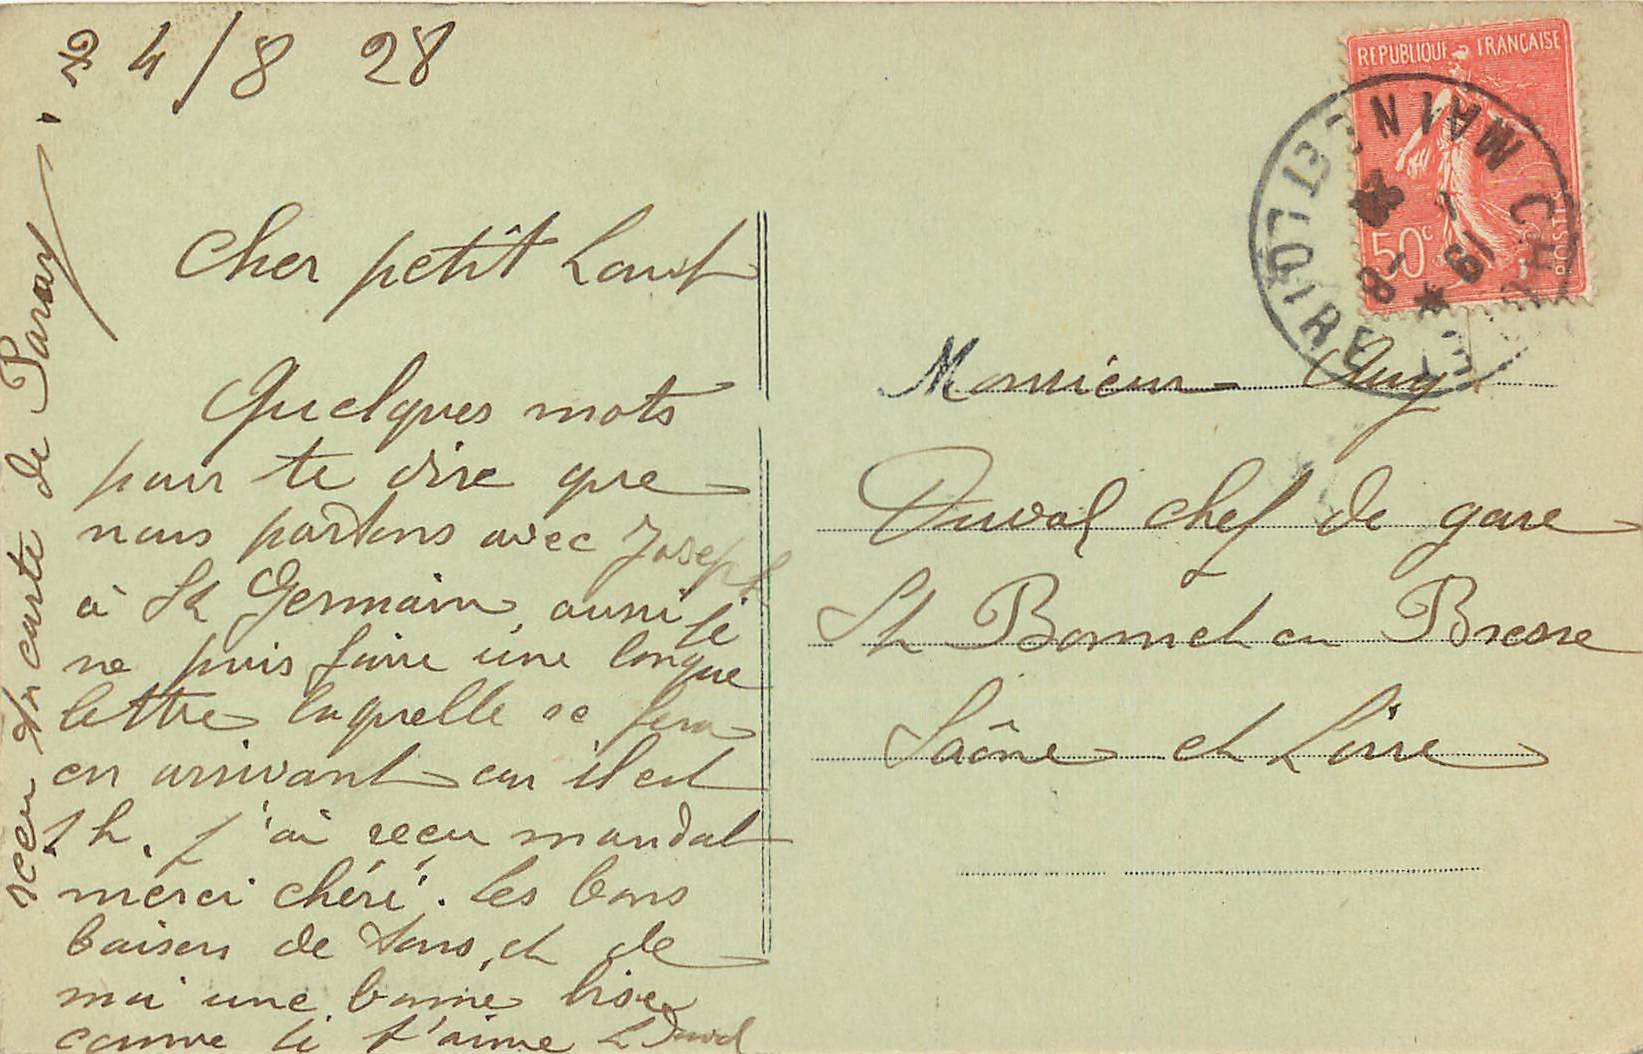 24/8 28
Cher petit Lout
Quelques mots
pour te dire que
nous partons avec Joseph
à St Germain, aussi je
ne puis faire une longue
lettre laquelle se fera
en arrivant car il est
1 h. j'ai reçu mandat
merci chéri. Les bons
baisers de tous, et de
moi une bonne bise
comme je t'aime L Duval
reçu ta carte de Paray
REPUBLIQUE FRANÇAISE
50c
POSTES
Monsieur Guy
Duval chef de gare
St Bonnet en Bresse
Saône et Loire